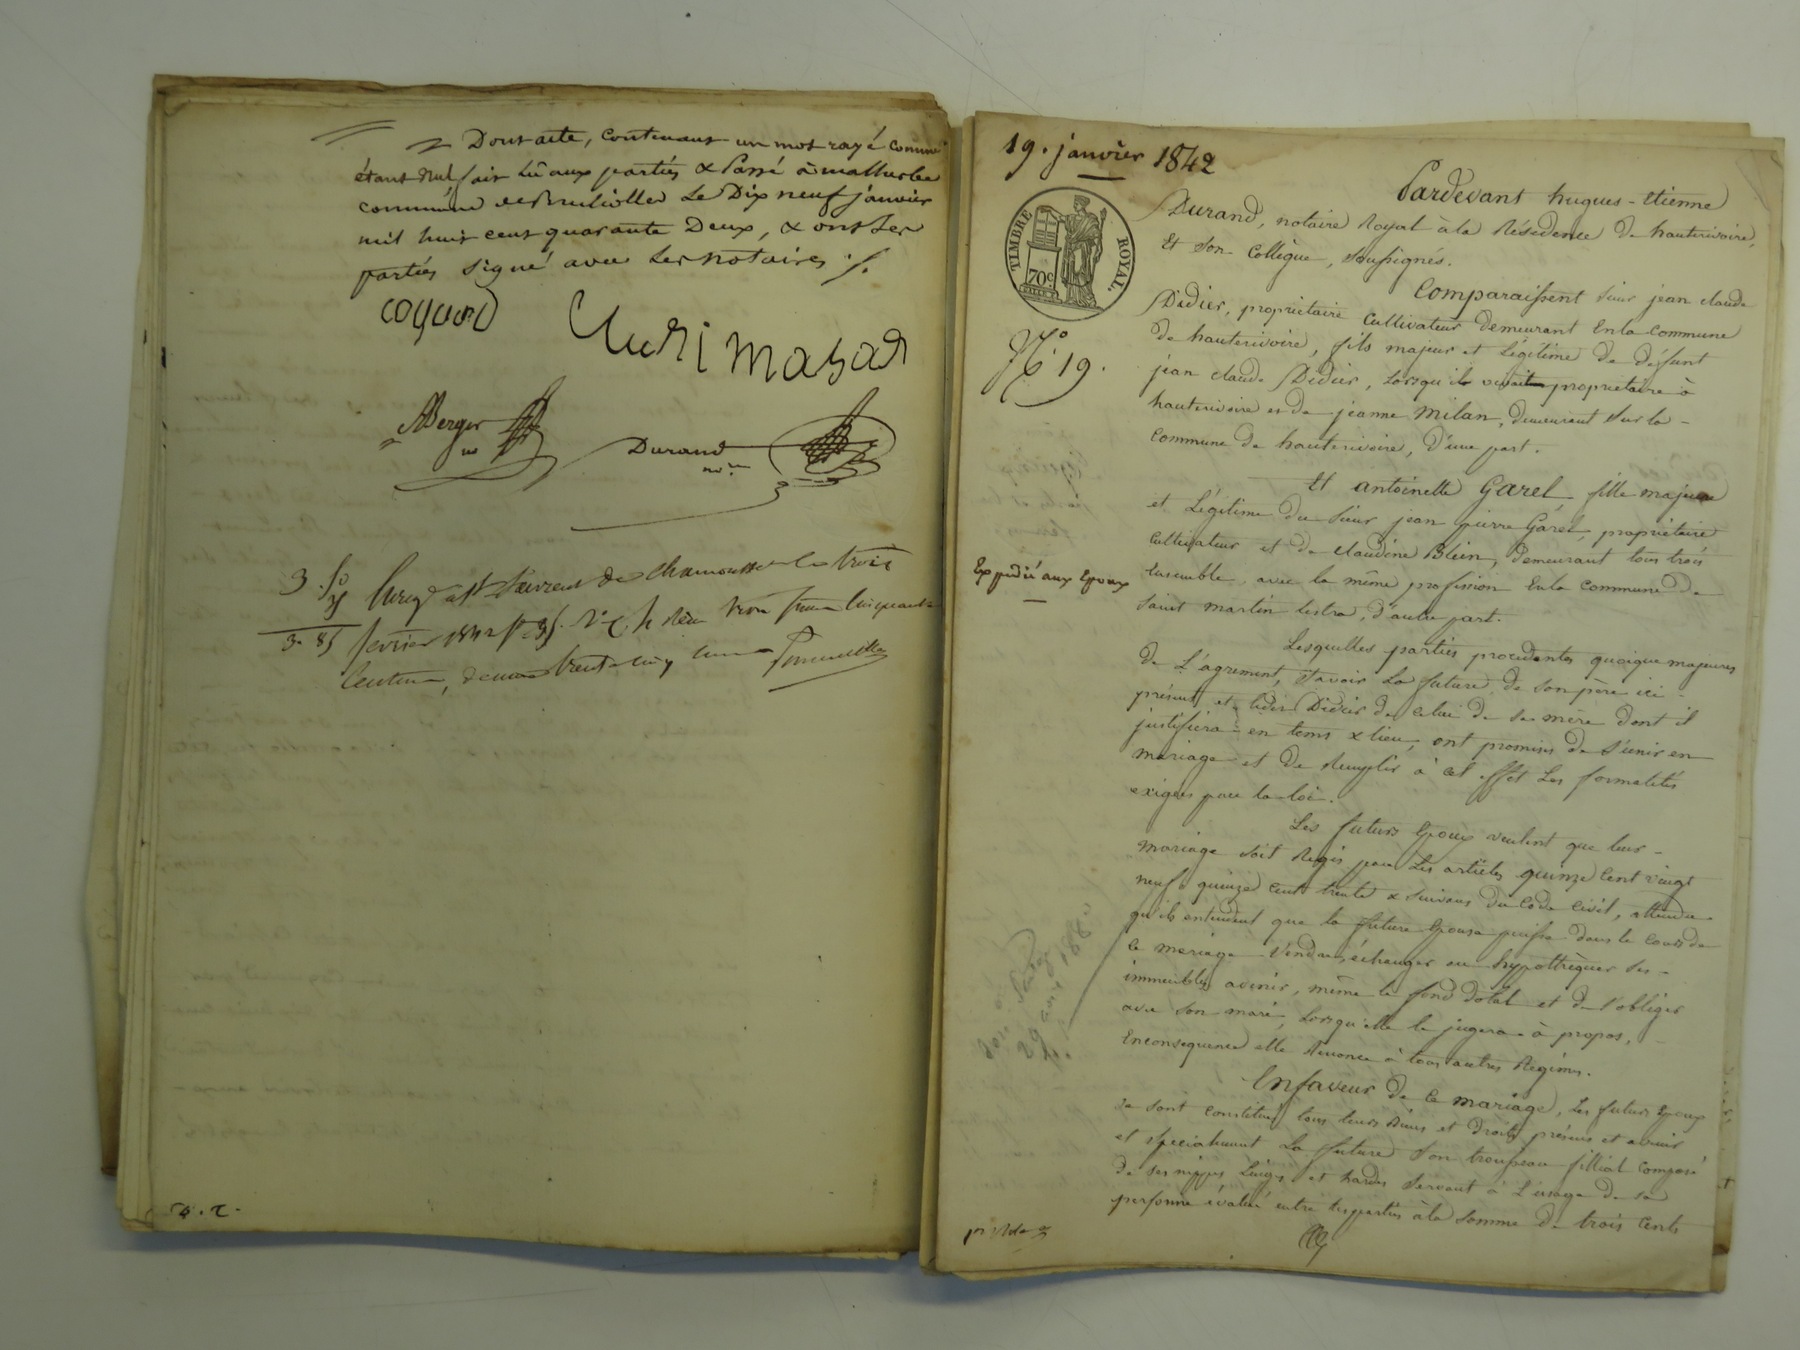 Dont acte, contenant un mot rayé comme
étant nul, fait lû aux parties & Passé à malherbe
commune de Brulliolles Le Dix neuf janvier
mil huit cent quarante Deux, & ont Les
parties signé avec Les notaires ./.
coquard
mazas
Berger
Durand
nre
3. 50
35
3. 85
Enreg. à St Laurent de chamousset le trois
février 1842 trois francs cinquante
centimes, décime trente cinq centimes
19. janvier 1842
TIMBRE ROYAL.
70c
No 19.
Expédié aux Epoux
Pardevant hugues-etienne
Durand, notaire Royal à la Résidence De hauterivoire,
Et Son Collègue, Soussignés.
Comparaissent Sieur jean claude
Didier, propriétaire Cultivateur Demeurant En la Commune
De hauterivoire, fils majeur et Légitime De Défunt
jean claude Didier, Lorsqu'il vivait propriétaire à
hauterivoire et De jeanne milan, Demeurant Sur la
Commune De hauterivoire, D'une part.
Et antoinette Garel fille majeure
et Légitime du Sieur jean pierre Garel, propriétaire
Cultivateur et De claudine Blein, Demeurant tous trois
Ensemble, avec la même profession En la Commune De
Saint martin lestra, d'autre part.
Lesquelles parties procédantes quoique majeures
De L'agrement, Savoir La future, de son père ici
présent, et ledit Didier De celui De sa mère dont il
justifiera en tems & lieu, ont promis de S'unir en
mariage et De Remplir à cet effet Les formalités
exigées par la loi.
Les futurs Epoux veulent que leur
mariage soit Régis par Les articles quinze Cent vingt
neuf quinze cent trente & Suivans du Code Civil, attendu
qu'ils entendent que la future Epouse puisse dans le cours De
Ce mariage Vendre, échanger ou hypothèquer Ses
immeubles avenir, même le fond dotal et De s'obliger
avec Son mari, Lorsqu'elle le jugera à propos,
Enconsequence elle Renonce à tous autres Régimes.
En faveur De Ce mariage, Les futurs Epoux
se sont constitués tous leurs Biens et Droits présens et avenir
et Specialement La future Son trousseau fillial composé
De Ses nippes Linges et hardes Servant à L'usage De Sa
personne évalué entre les parties à la Somme De trois Cents